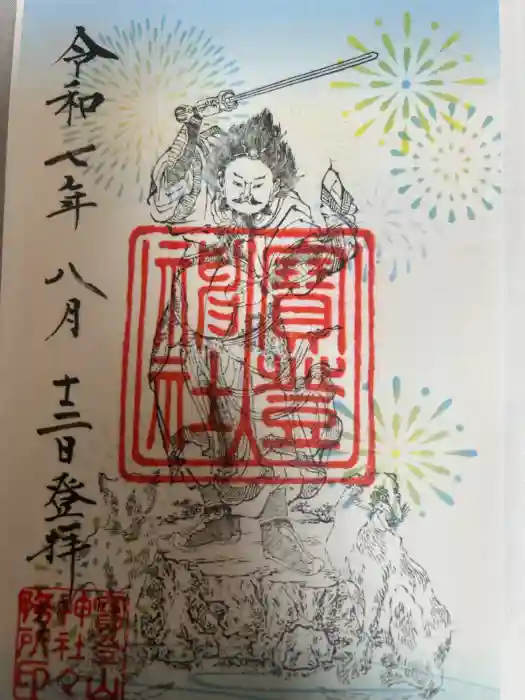 令和七年八月十三日登拝
寶登
神社
寶登山
神社々
務所印